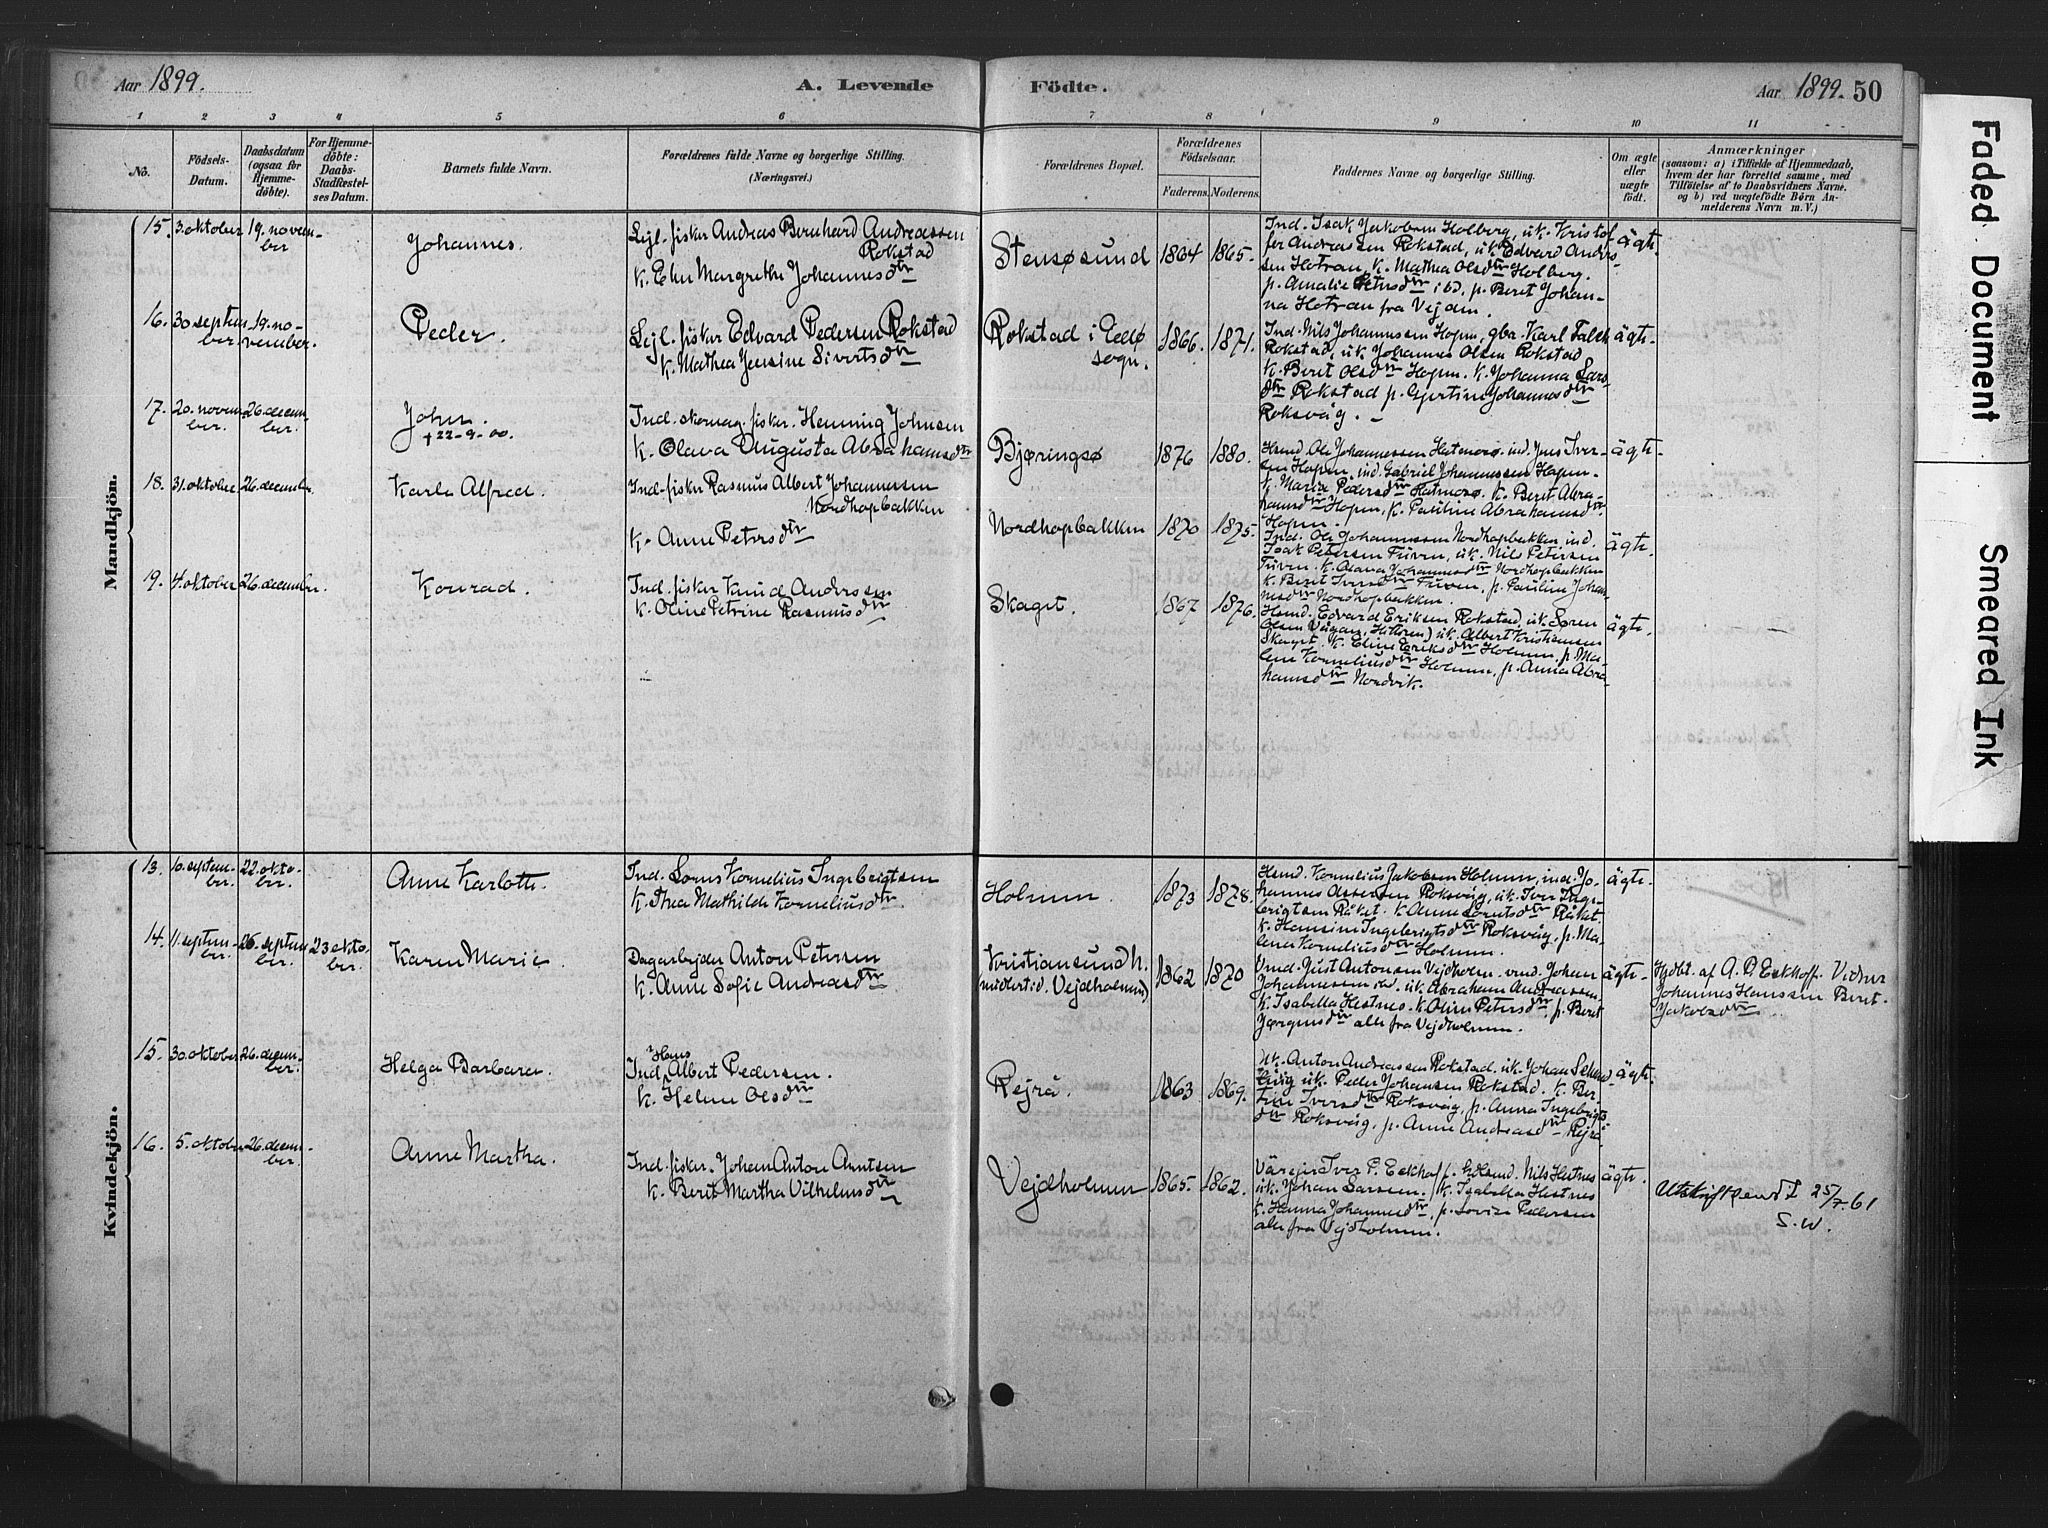 Aar 1899.
A. Levende
Födte.
Aar 1899. 50
1 2 3 4 5 6 7 8 9 10 11
No.
Födsels-
Datum.
Daabsdatum
(ogsaa for
Hjemme-
döbte).
For Hjemme-
döbte:
Daabs-
Stadfæstel-
ses Datum.
Barnets fulde Navn.
Forældrenes fulde Navne og borgerlige Stilling.
(Næringsvei.)
Forældrenes Bopæl.
Forældrenes
Födselsaar.
Faderens. Moderens.
Faddernes Navne og borgerlige Stilling.
Om ægte
eller
uægte
födt.
Anmærkninger
(saasom: a) i Tilfælde af Hjemmedaab,
hvem der har forrettet samme, med
Tilföielse af to Daabsvidners Navne.
og b) ved uægtefödte Börn An-
melderens Navn m. V.)
Mandkjön.
15. 3. oktober 19. novem-
ber
Johannes.
Lejl. fisker Andreas Bernhard Andreassen
Rokstad
K. Elen Margrethe Johannesdtr
Stensøsund 1864 1865.
Ind. Isak Jakobsen Holberg, uk. Kristof-
fer Andreassen Rokstad, uk. Edvard Anders-
sen Hotran, K. Mathea Olsdtr Holberg.
p. Amalie Petersdtr ibd, p. Beret Johan-
na Hotran fra Vejden.
ägte.
16. 30 septem-
ber. 19. no-
vember.
Peder.
Lejl. fisker Edvard Pedersen Rokstad
K. Mathea Jensine Sivertsdtr
Rokstad i Edø
sogn. 1866. 1871.
Ind. Nils Johannessen Hopen, gbr. Karl Falck
Rokstad, uk. Johannes Olsen Rokstad
K. Beret Olsdtr Hopen. K. Johanna Lars-
dtr Rokstad p. Gjertine Johannesdtr
Roksvåg. –
ägte.
17. 20. novem-
ber. 26. decem-
ber.
John.
† 22-9-00.
Ind. skomag. fisker. Henning Johnsen
K. Olava Augusta Abrahamsdtr
Bjøringsø 1876 1880.
Husmd. Ole Johannessen Hatmosø. ind. Jens Iver-
sen Hopen, ind. Gabriel Johannessen Hopen.
K. Marie Pedersdtr Hatmosø. K. Beret Abra-
hamsdtr Hopen, K. Pauline Abrahamsdtr
Hopen.
ägte.
18. 31. oktober 26. december.
Karl Alfred.
Ind. fisker Rasmus Albert Johannessen
Nordhopbakken
K. Anne Petersdtr
Nordhopbakken 1870 1875.
Ind. Ole Johannessen Nordhopbakken ind.
Isak Petersen Tuven, uk. Nils Petersen
Tuven. K. Olava Johannesdtr Nordhopbakken
K. Beret Iversdtr Tuven, p. Pauline Johan-
nesdtr Nordhopbakken.
ägte.
19. 4. oktober 26. december.
Konrad.
Ind. fisker Knud Anderssen
K. Oline Petrine Rasmusdtr
Skaget. 1867 1876.
Husmd. Edvard Eriksen Rokstad, uk. Søren
Olsen Vågan, Hitteren) uk. Albert Kristiansen
Skaget. K. Eline Eriksdtr Holmen, p. Ma-
lene Korneliusdtr Holmen, p. Anna Abra-
hamsdtr Nordvik.
ägte.
Kvindekjön.
13. 10. septem-
ber. 22. okto-
ber.
Anne Karlotte.
Ind. Lorns Kornelius Ingebrigtsen
K. Thea Mathilde Korneliusdtr.
Holmen. 1873 1878.
Husmd. Kornelius Jakobsen Holmen, ind. Jo-
hannes Assersen Roksvåg, uk. Iver Inge-
brigtsen Råket. K. Anne Lorntsdtr Råket.
K. Hansine Ingebrigtsdtr Roksvåg, p. Ma-
lena Korneliusdtr Holmen.
ägte.
14. 11. septem-
ber. 26. septem-
ber. 23 okto-
ber.
Karen Marie.
Dagarbejder Anton Petersen
K. Anne Sofie Andreasdtr
Kristiansund N.
(midlertid. Vejdholmen) 1862 1870
Ind. Just Antonsen Vejdholm. ind. Johan
Johannessen ibd. uk. Abraham Andreassen.
K. Isabella Hestnes. K. Oline Petersdtr, p. Beret
Jørgensdtr alle fra Vejdholmen.
ägte.
Hjdbt. af A. P. Eckhoff. Vidner
Johannes Hanssen Beret
Jakobsdtr
15. 30. oktober 26. decem-
ber.
Helga Barbara.
Hans
Ind. Albert Pedersen.
K. Helene Olsdtr
Rejrå. 1863 1869.
Uk. Anton Andreassen Rokstad. uk. Johan
uk. Peder Johansen Rokstad. K. Ber-
tine Iversdtr Roksvåg, p. Anna Ingebrigts-
dtr Roksvåg, p. Anne Andreasdtr Rejrå
ägte.
16. 5. oktober 26. decem-
ber.
Anne Martha.
Ind. fisker. Johan Anton Arntsen
K. Beret Martha Vilhelmsdtr
Vejdholmen 1865. 1862.
Värejer Iver P. Eckhoff. Nils Hestnes
uk. Johan Larsen. K. Isabella Hestnes
K. Hanna Johannesdtr, p. Lovise Pedersen
alle fra Vejdholmen.
ägte.
Utskrift sendt 25/7. 61
S.W.
Faded Document
Smeared Ink